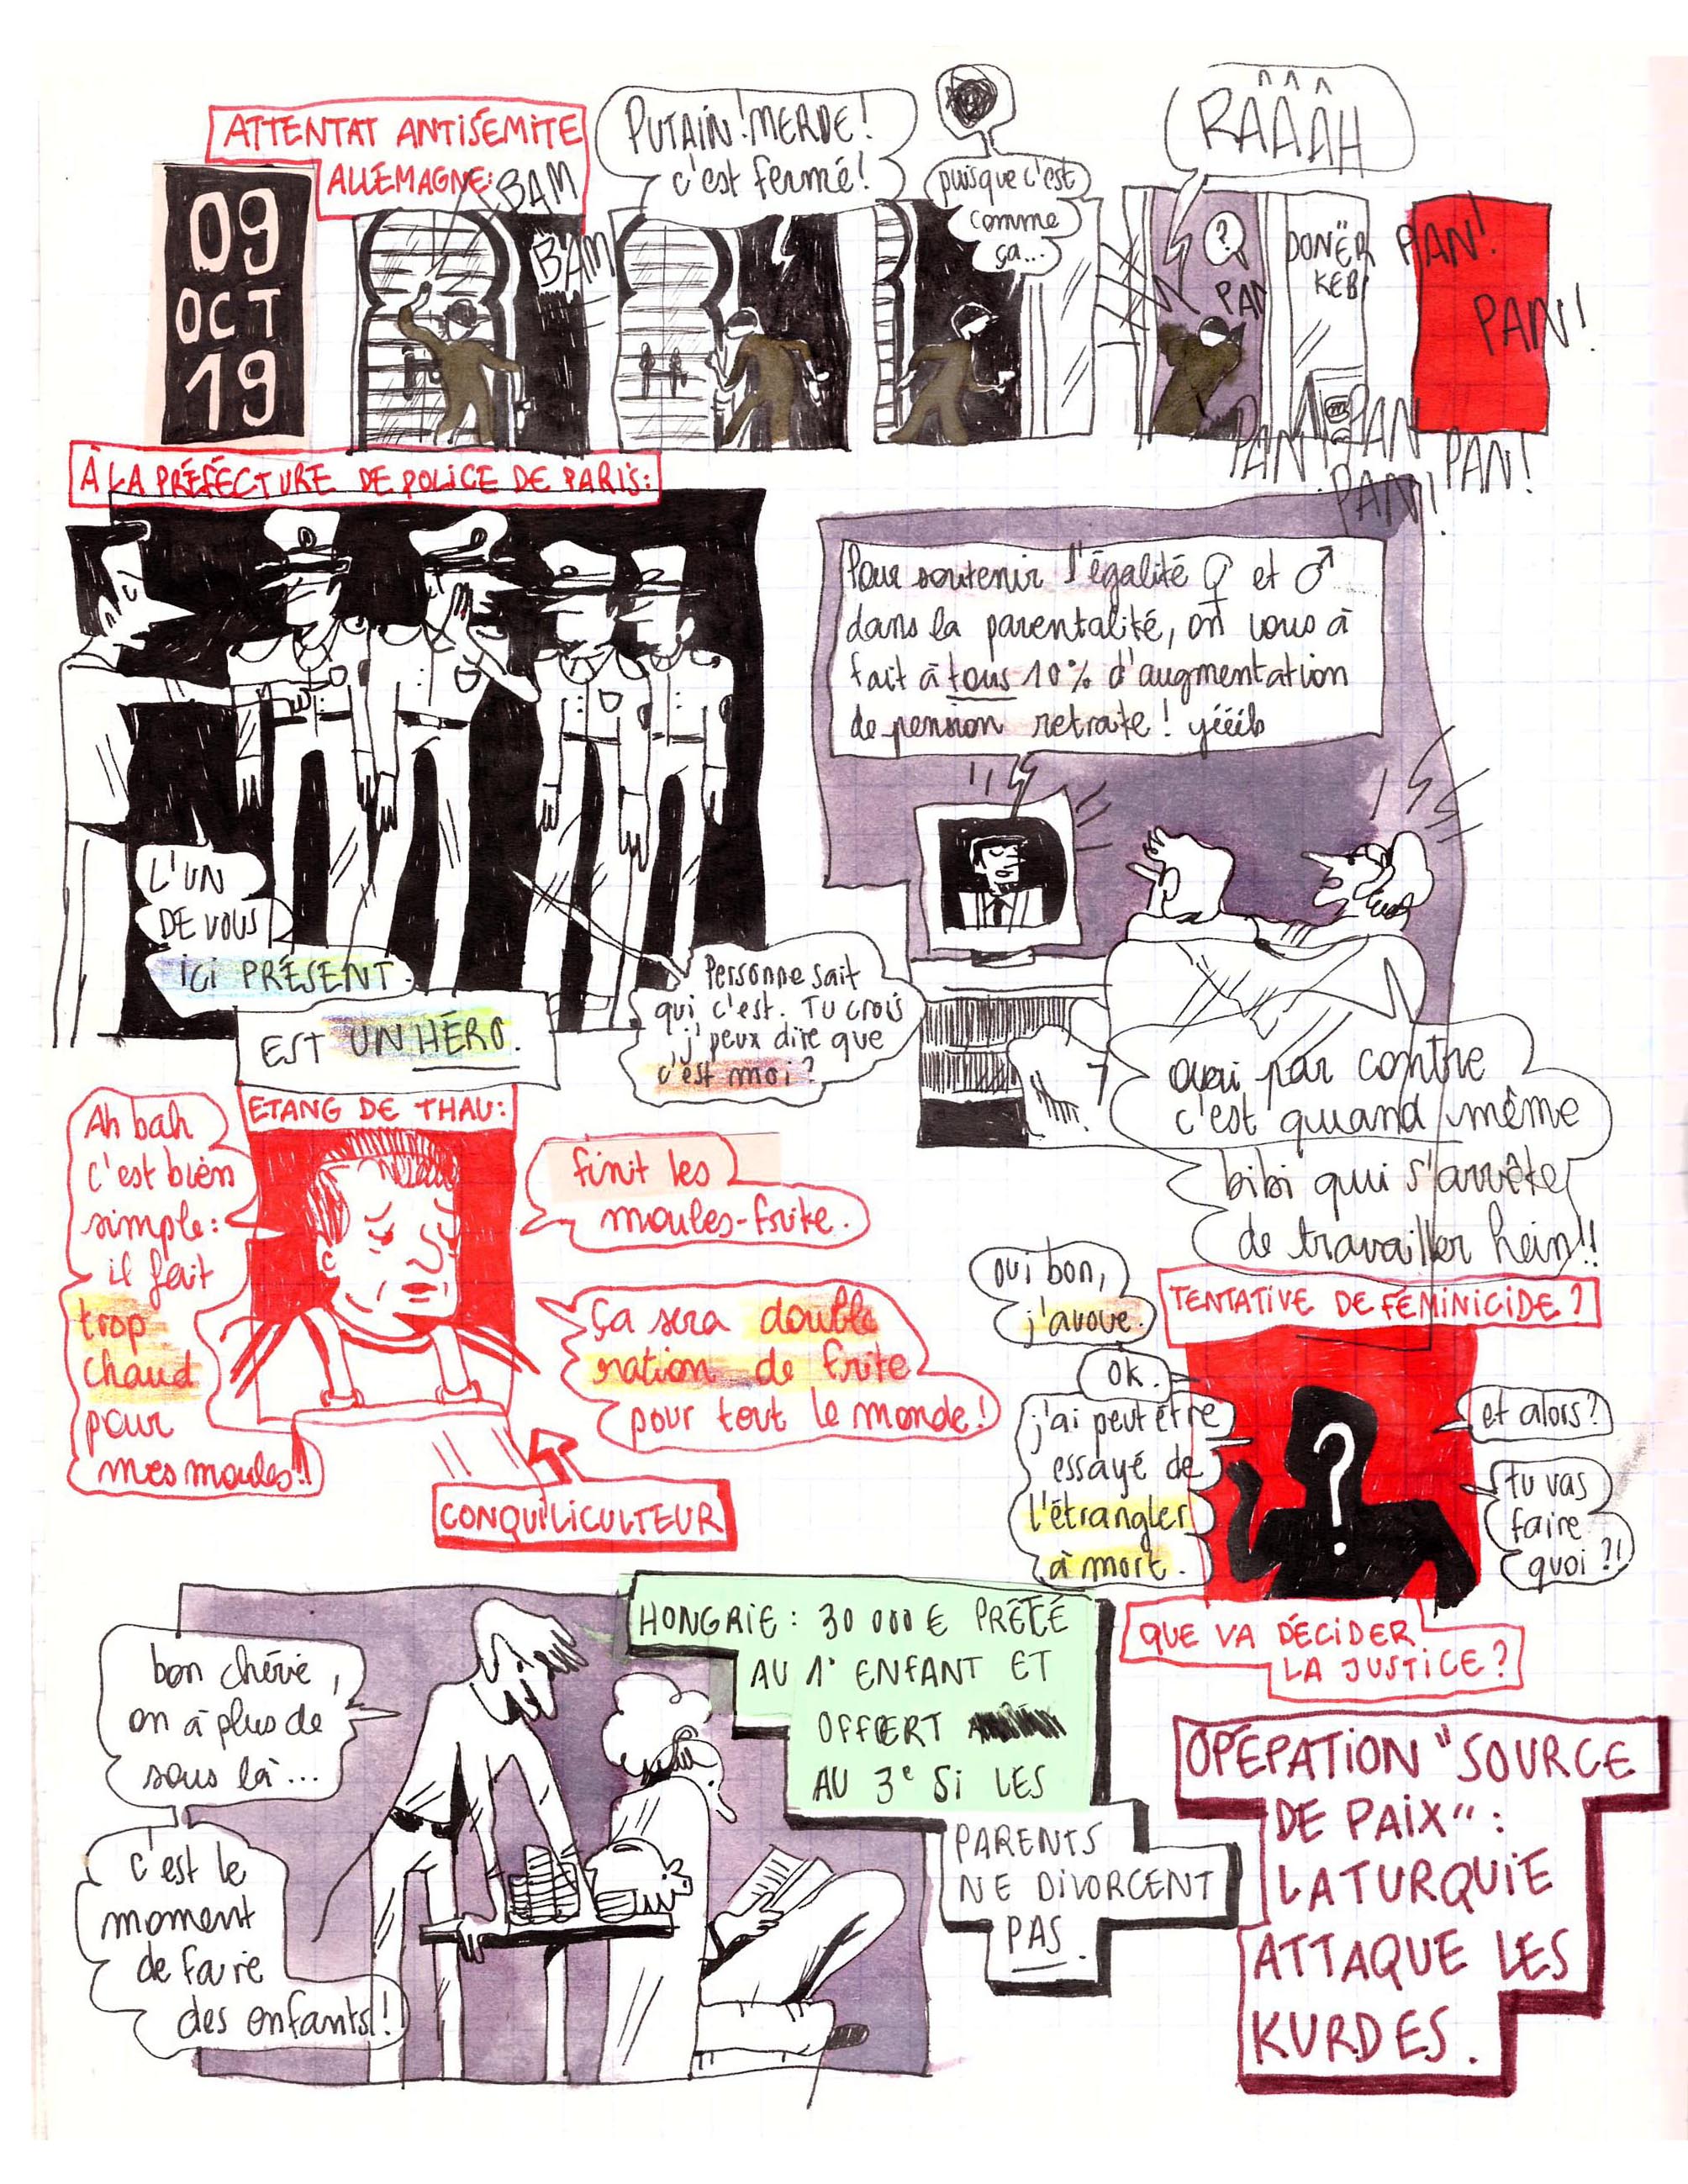 09
OCT
19
ATTENTAT ANTISÉMITE
ALLEMAGNE:
BAM
BAM
PUTAIN! MERDE!
c'est fermé!
puisque c'est
comme
ça...
RÂÂÂH
?
PAN
DONËR
KEB
PAN!
PAN!
PAN!
PAN
PAN!
PAN!
À LA PRÉFÉCTURE DE POLICE DE PARIS:
L'UN
DE VOUS
ici PRÉSENT.
EST UN HÉRO.
Personne sait
qui c'est. Tu crois
j'peux dire que
c'est moi?
Pour soutenir l'égalité ♀ et ♂
dans la parentalité, on vous à
fait à tous 10% d'augmentation
de pension retraite! yééib
ouai par contre
c'est quand même
bibi qui s'arrête
de travailler hein!!
ETANG DE THAU:
Ah bah
c'est bien
simple:
il fait
trop
chaud
pour
mes moules!!
finit les
moules-frite.
Ça sera double
ration de frite
pour tout le monde!
CONQUILICULTEUR
TENTATIVE DE FÉMINICIDE?
oui bon,
j'avoue.
OK.
j'ai peut être
essayé de
l'étrangler
à mort.
?
et alors?
tu vas
faire
quoi?!
QUE VA DÉCIDER
LA JUSTICE?
bon chérie,
on à plus de
sous là...
c'est le
moment
de faire
des enfants!
HONGRIE: 30 000 € PRÊTÉ
AU 1° ENFANT ET
OFFERT
AU 3e Si LES
PARENTS
NE DIVORCENT
PAS.
OPÉPATION "SOURCE
DE PAIX":
LA TURQUIE
ATTAQUE LES
KURDES.